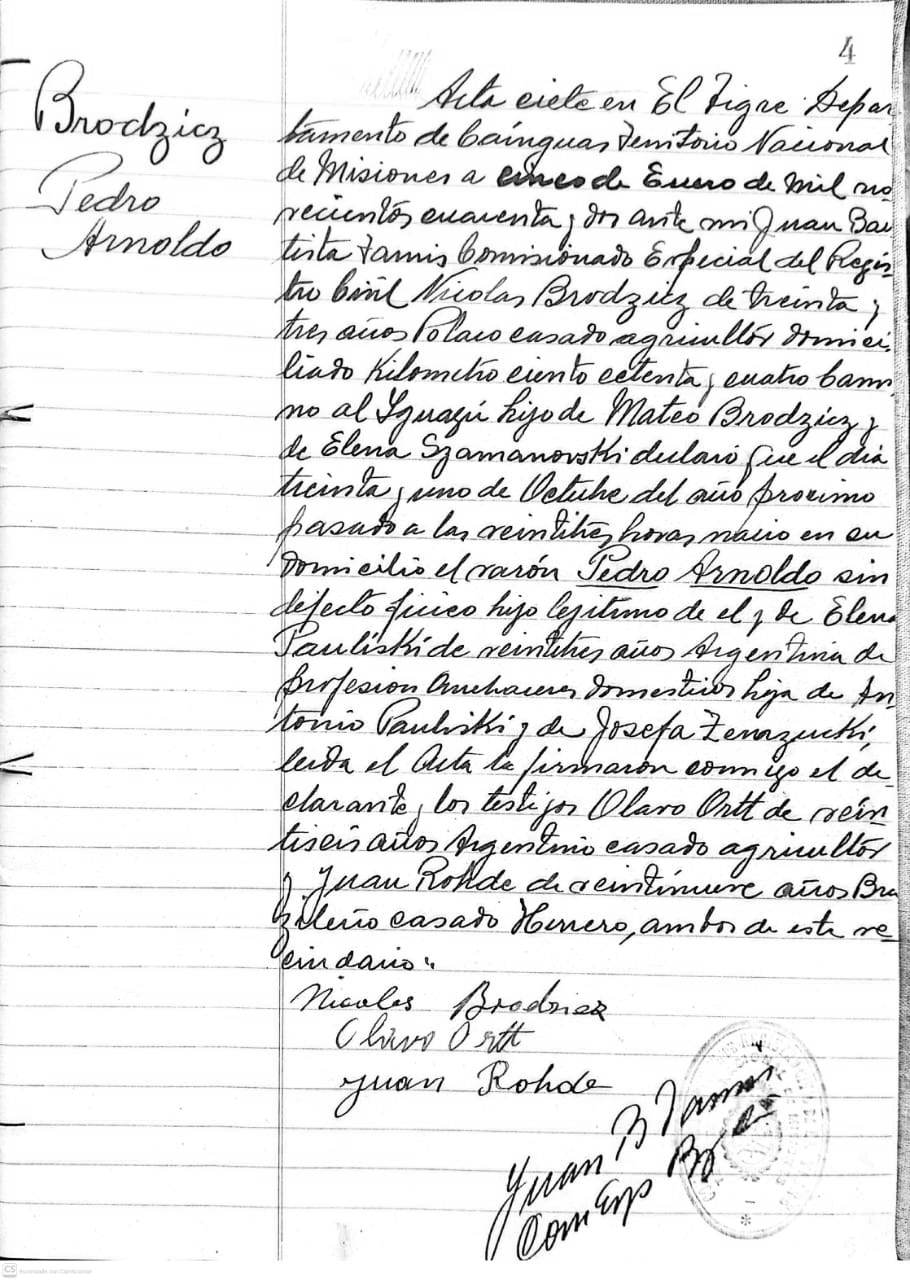 4
Brodzicz
Pedro
Arnoldo
Acta ciete en El Tigre Depar-
tamento de Cainguas Territorio Nacional
de Misiones a cinco de Enero de Mil no-
vecientos cuarenta y dos ante mi Juan Bau
tista Tamis Comisionado Especial del Regis-
tro Civil Nicolas Brodzicz de treinta y
tres años Polaco casado agricultor domici-
liado Kilometro ciento cetenta y cuatro Cami-
no al Yguazú hijo de Mateo Brodzicz y
de Elena Szamanovski declaró que el dia
treinta y uno de Octubre del año proximo
pasado a las veintitres horas nacio en su
domicilio el varón Pedro Arnoldo sin
defecto ficico hijo legitimo de el y de Elena
Pauliski de veintitres años Argentina de
profesion Quehaceres domesticos hija de An-
tonio Pauliski y de Josefa
leida el Acta la firmaron conmigo el de-
clarante y los testigos Olavo Ortt de vein-
tiseis años Argentino casado agricultor
y Juan Rohde de veintinueve años Bra
zileño casado Herrero, ambos de este ve-
cindario:,
Nicolas Brodzicz
Olavo Ortt
Juan Rohde
Juan B Tamis
Com Esp
CS Escaneado con CamScanner